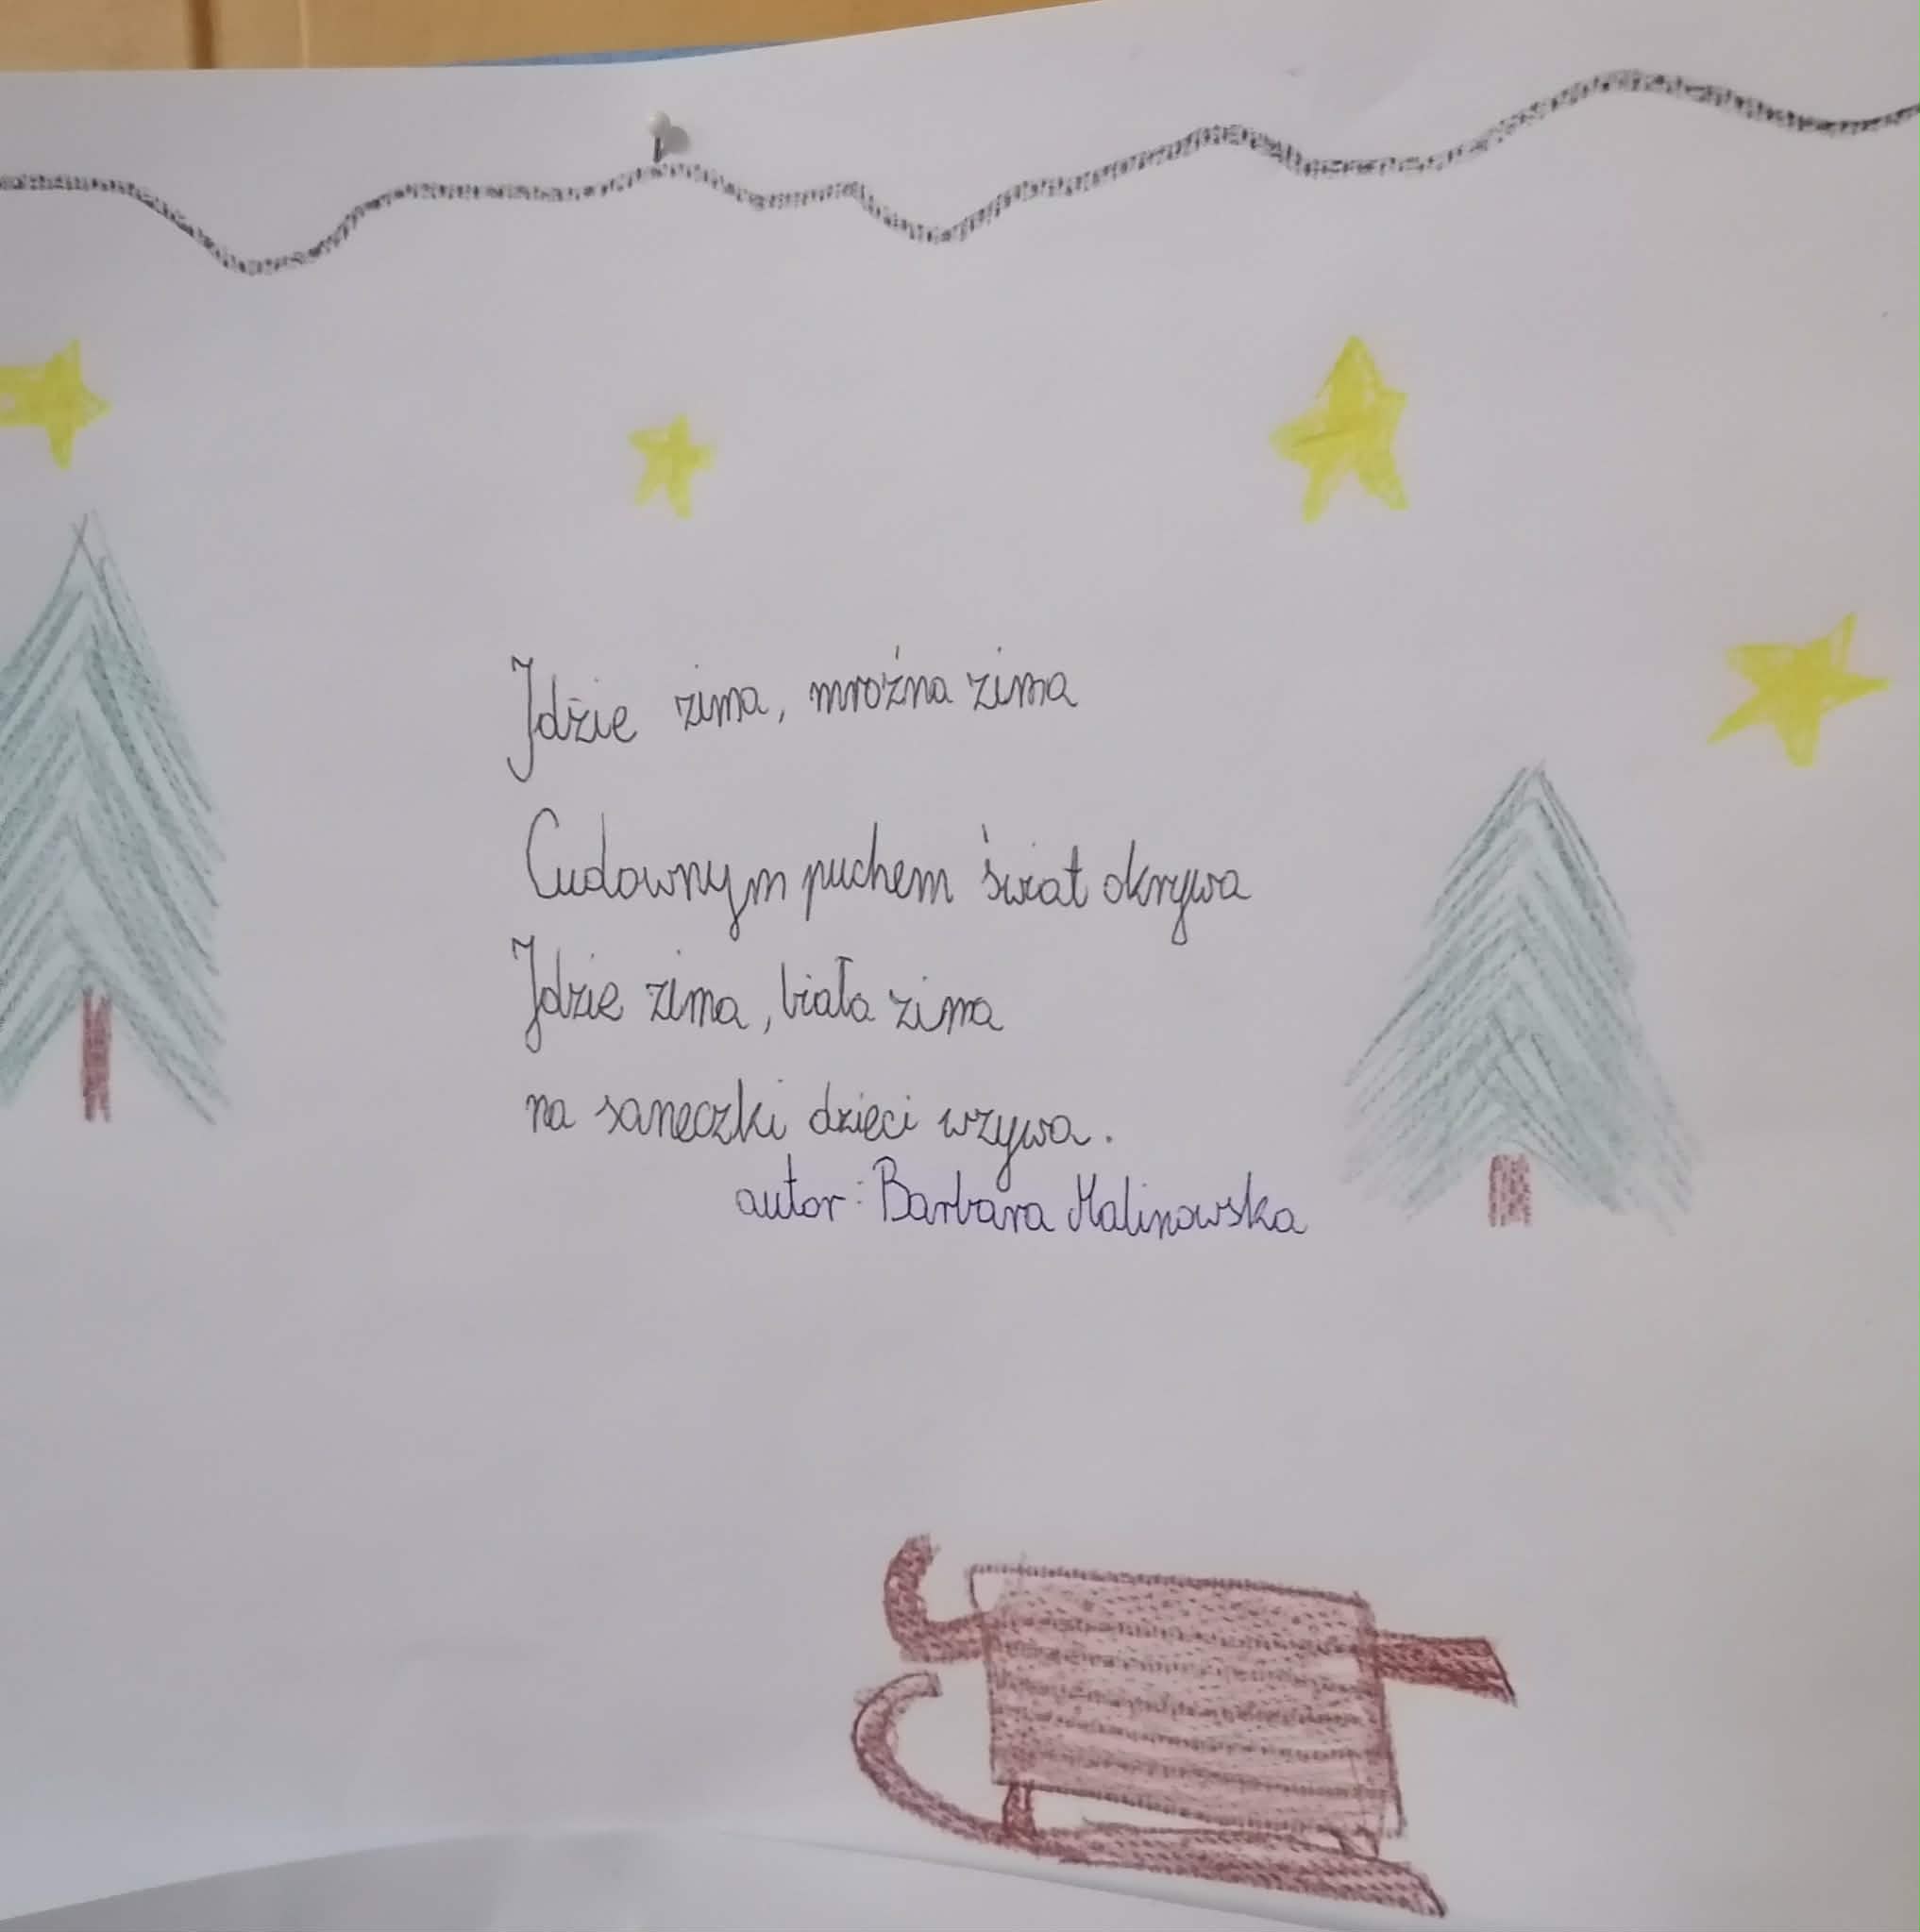 Idzie zima, mroźna zima
Cudownym puchem świat okrywa
Idzie zima, biała zima
na saneczki dzieci wzywa.
autor: Barbara Malinowska